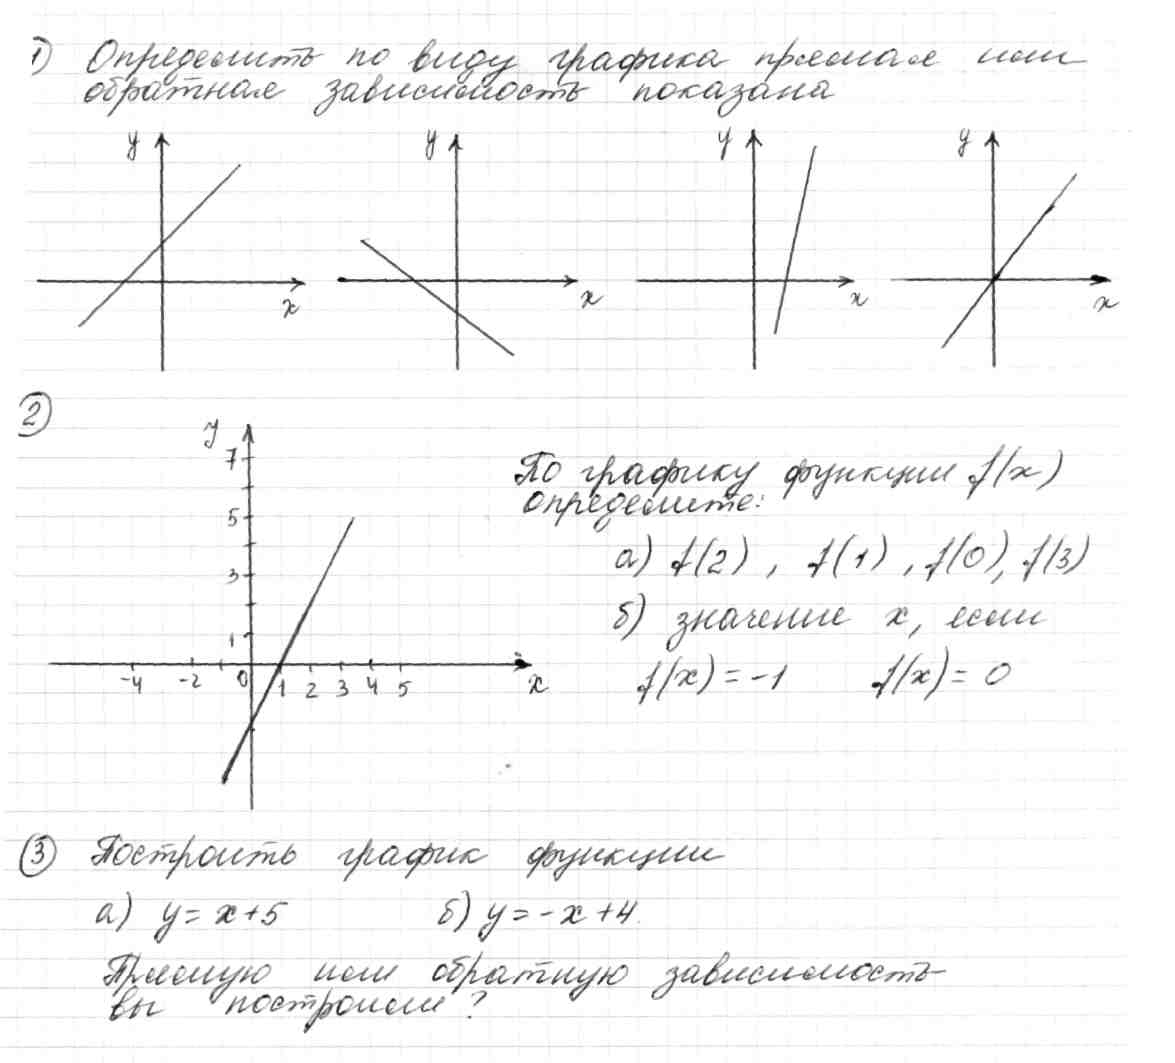 1) Определить по виду графика прямая или
обратная зависимость показана
y y y y
x x x x
2
y
7
5
3
1
-4 -2 0 1 2 3 4 5 x
По графику функции f(x)
определите:
а) f(2), f(1), f(0), f(3)
б) значение x, если
f(x) = -1 f(x) = 0
3 Построить график функции
а) y = x+5 б) y = -x+4.
Прямую или обратную зависимость
вы построили?